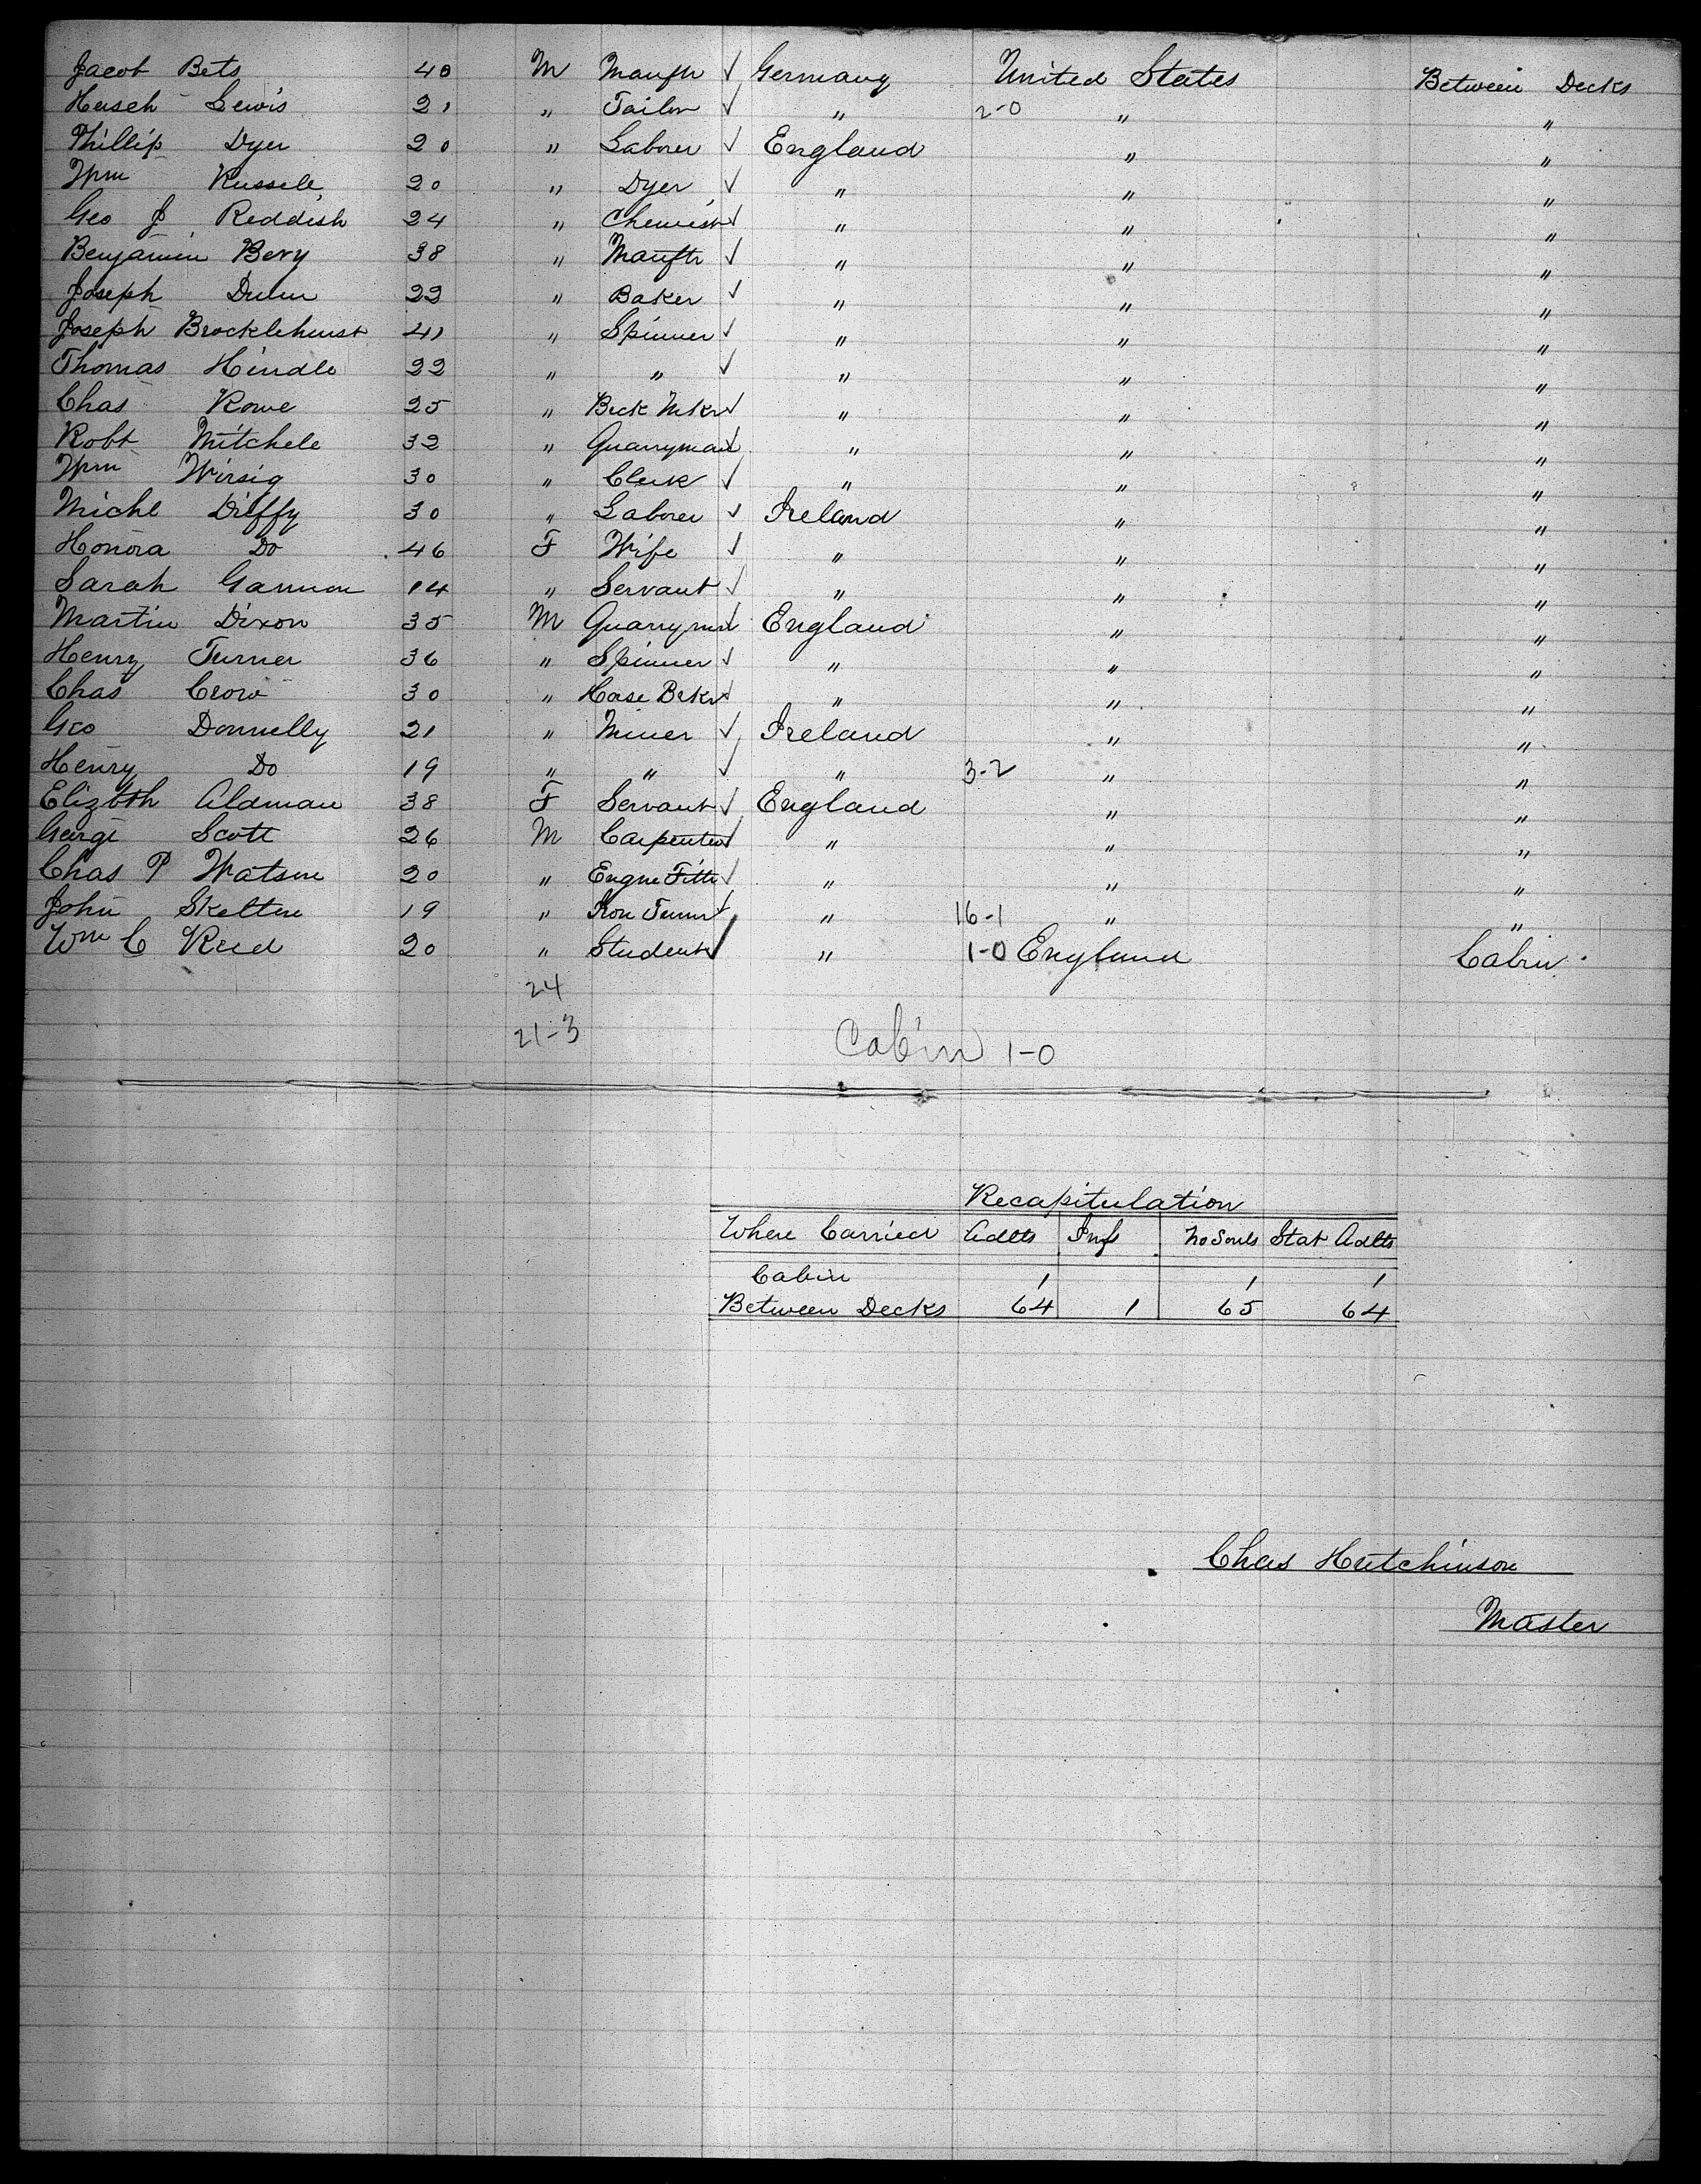 Jacob Bets 40 M Mauftr ✓ Germany United States Between Decks
Hersch Lewis 21 " Tailor ✓ " 2-0 " "
Phillip Dyer 20 " Laborer ✓ England " "
Wm Russell 20 " Dyer ✓ " " "
Geo J Reddish 24 " Chemist ✓ " " "
Benjamin Bery 38 " Mauftr ✓ " " "
Joseph 22 " Baker ✓ " " "
Joseph Brocklehurst 41 " Spinner ✓ " " "
Thomas Hindle 22 " " ✓ " " "
Chas Rowe 25 " Brck Mkr ✓ " " "
Robt Mitchell 32 " Quarryman ✓ " " "
Wm Wirsig 30 " Clerk ✓ " " "
Michl Duffy 30 " Laborer ✓ Ireland " "
Honora Do 46 F Wife ✓ " " "
Sarah Gannon 14 " Servant ✓ " " "
Martin Dixon 35 M Quarrymn ✓ England " "
Henry Turner 36 " Spinner ✓ " " "
Chas Crow 30 " Brkr ✓ " " "
Geo Donnelly 21 " Miner ✓ Ireland " "
Henry Do 19 " " ✓ " 3-2 " "
Elizbth Aldman 38 F Servant ✓ England " "
George Scott 26 M Carpenter ✓ " " "
Chas P Watson 20 " Engne Fittr ✓ " " "
John Skelton 19 " Iron Turnr ✓ " 16-1 " "
Wm C Reid 20 " Student ✓ " 1-0 England Cabin
24
21-3 Cabin 1-0
Recapitulation
Where Carried Adlts Infs No Souls Stat Adlts
Cabin 1 1 1
Between Decks 64 1 65 64
Chas Hutchinson
Master